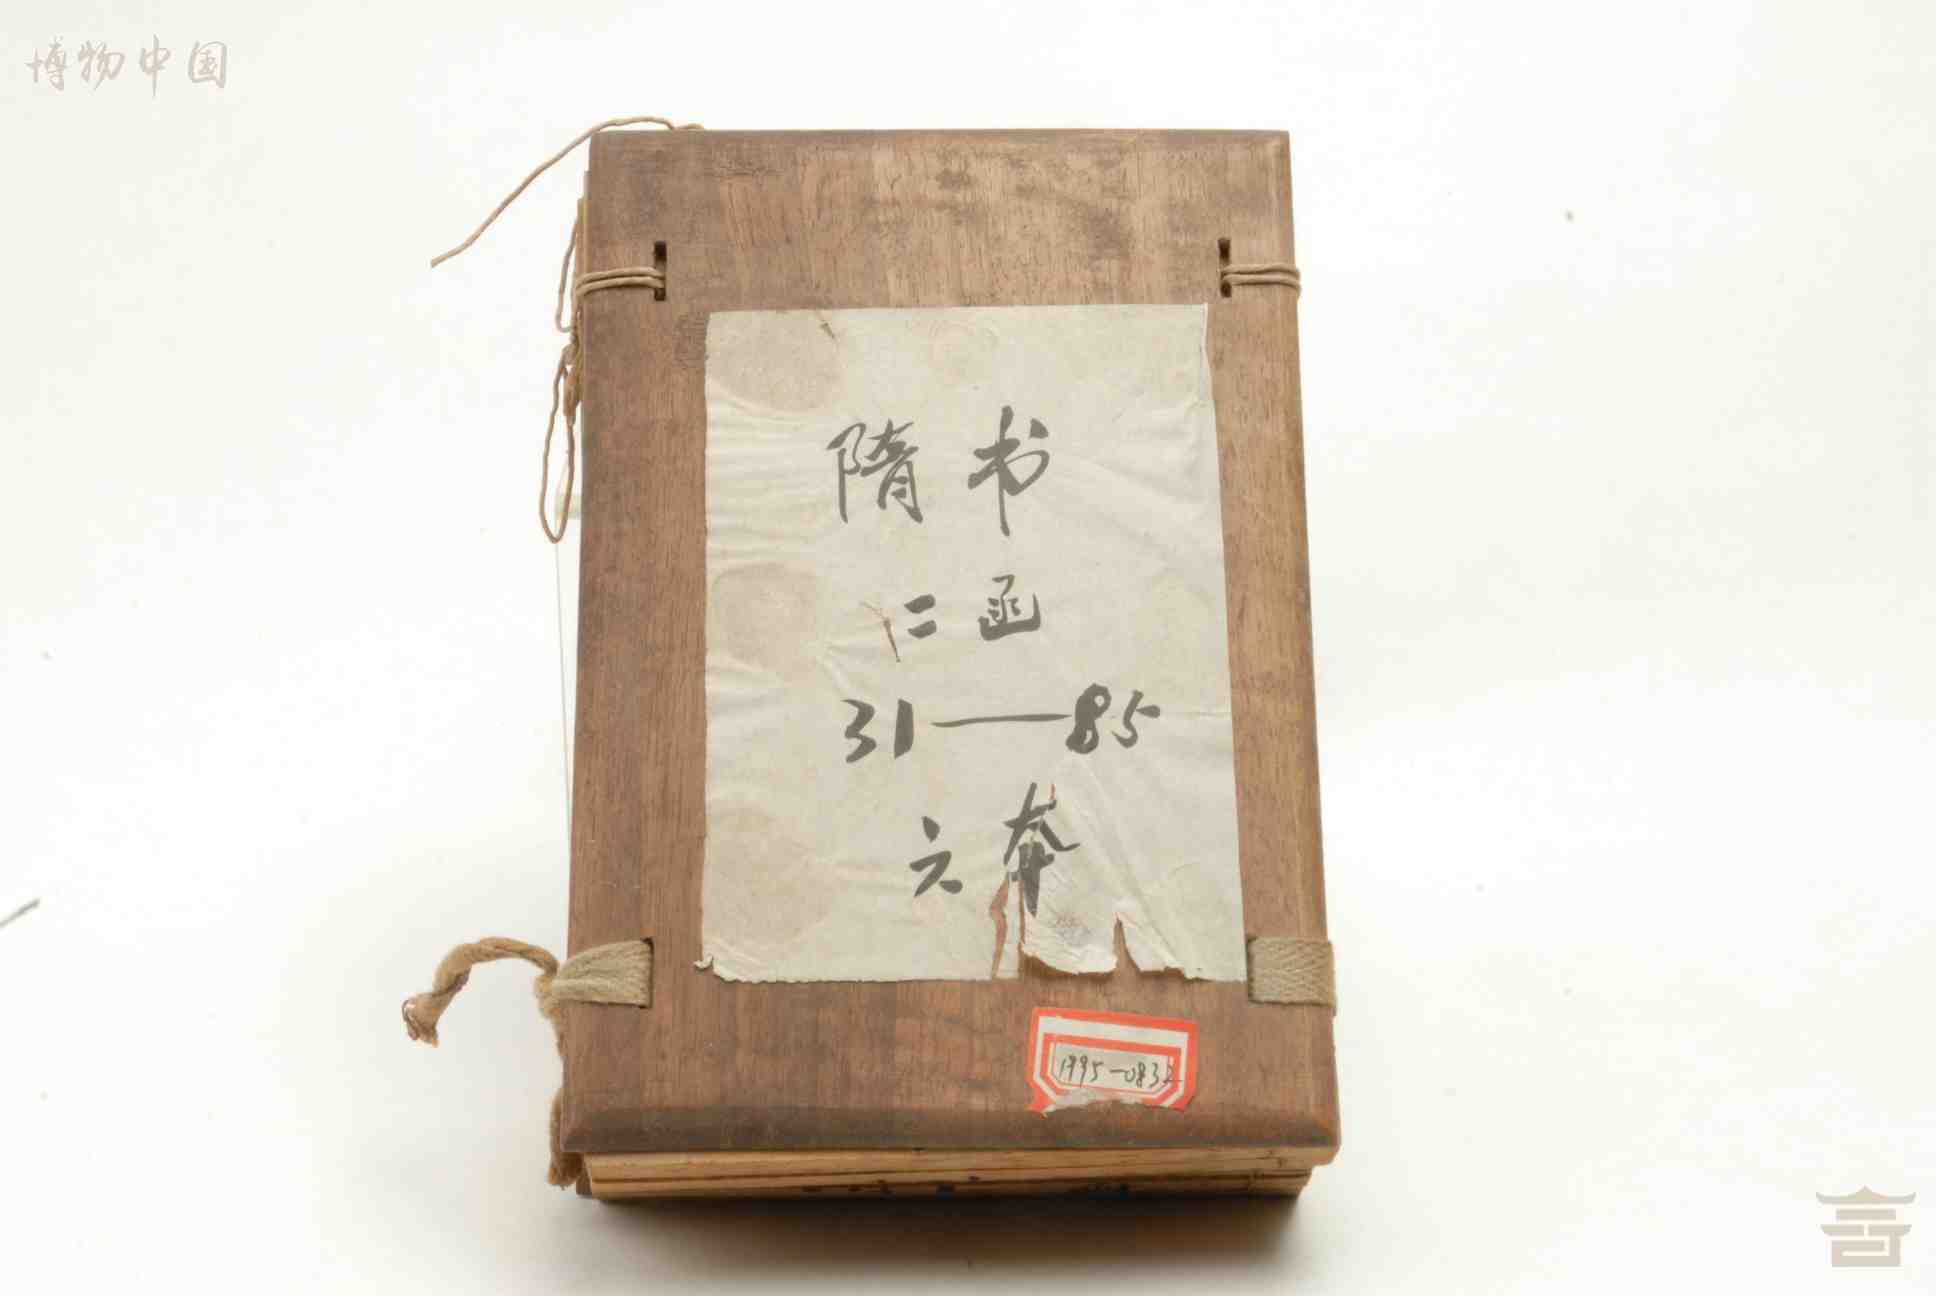 博物中国
隋书
二函
31—85
六本
1995-0832